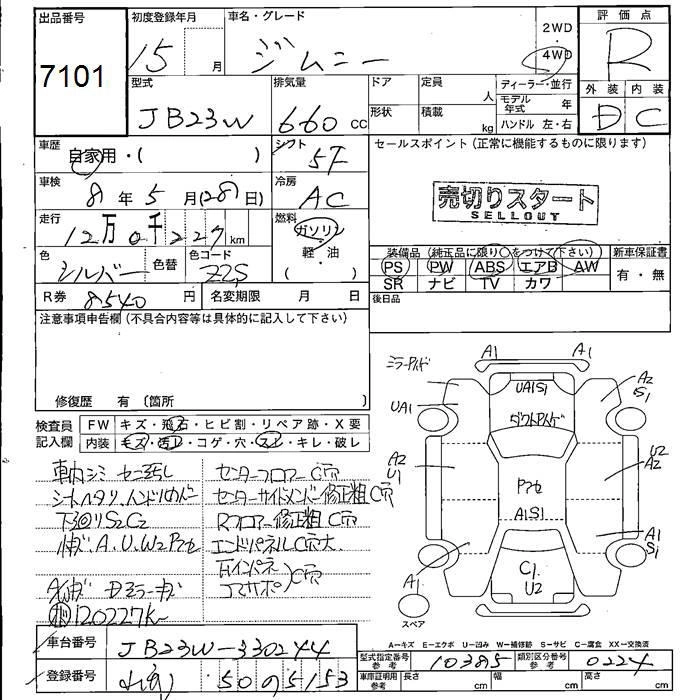 出品番号 初度登録年月 車名・グレード 2WD・4WD 評価点
7101 15 月 ジムニー R
型式 排気量 ドア 定員 人 ディーラー・並行 外装 内装
JB23W 660 cc 形状 積載 kg モデル年式 年 D C
ハンドル 左・右
車歴 自家用・( ) シフト 5F セールスポイント (正常に機能するものに限ります)
車検 8年5月(28日) 冷房 AC 売切りスタート
SELLOUT
走行 12万0千227km 燃料 ガソリン
軽・油
( )
色 シルバー 色替 色コード Z2S
装備品 (純正品に限り○をつけて下さい) 新車保証書
PS PW ABS エアB AW 有・無
SR ナビ TV カワ
R券 8540円 名変期限 月 日 後日品
注意事項申告欄 (不具合内容等は具体的に記入して下さい)
修復歴 有 〔箇所 〕
検査員記入欄 FW キズ・飛石・ヒビ割・リペア跡・X要
内装 キズ・汚レ・コゲ・穴・スレ・キレ・破レ
車内シミ
シートヘタリ、ハンドルカバー
下廻りS2C2
A、U、W2
120227K
センターフロアーC穴
センターサイドメンバー修正粗C穴
Rフロアー修正粗C穴
エンドパネルC穴大
C穴
A1 A1
UA1S1
UA1
A2
S1
A2
U1
U2
A2
A1S1
A1
S1
A1
C1
U2
スペア
A=キズ E=エクボ U=凹み W=補修跡 S=サビ C=腐食 XX=交換済
車台番号 JB23W-330244
型式指定番号 参考 10385 類別区分番号 参考 0224
登録番号 50 5153
車庫証明用 参考 長さ cm 幅 cm 高さ cm